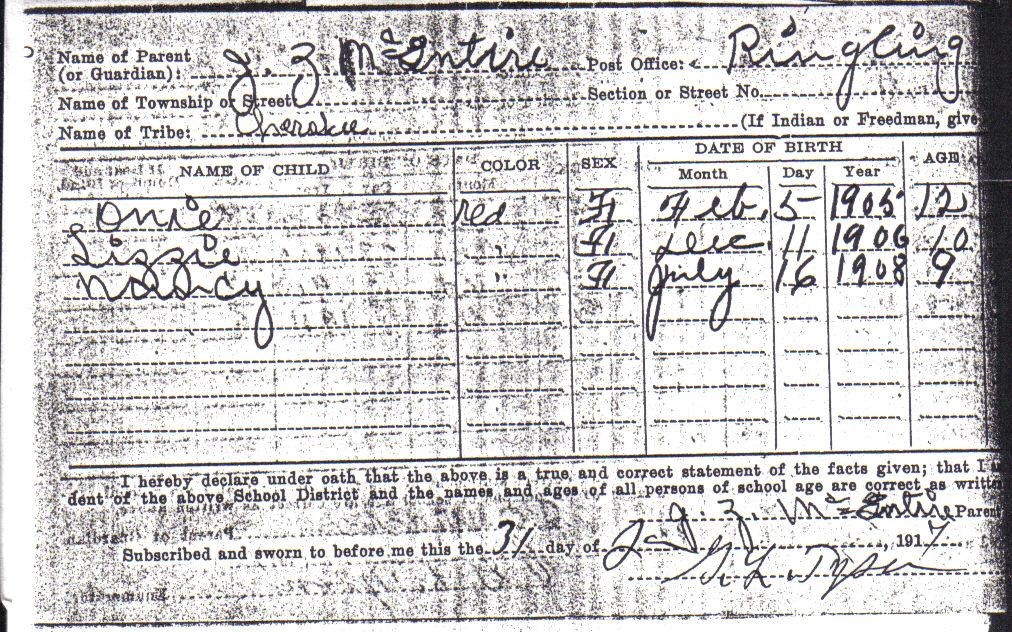 Name of Parent (or Guardian): J. Z McEntire Post Office: Ringling
Name of Township or Street Section or Street No.
Name of Tribe: Cherokee (If Indian or Freedman, give
NAME OF CHILD COLOR SEX DATE OF BIRTH AGE
Month Day Year
Onie red F Feb. 5 1905 12
Lizzie " F Dec. 11 1906 10
Naancy " F July 16 1908 9
I hereby declare under oath that the above is a true and correct statement of the facts given; that I
dent of the above School District and the names and ages of all persons of school age are correct as writt
J. Z. McEntire Parent
Subscribed and sworn to before me this the 31 day of , 1917